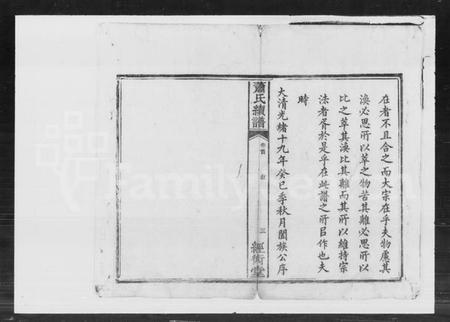 在者不且合之而大宗在乎夫物虞其
渙必思所以萃之物苦其離必思所以
比之萃其渙比其離而其所以維持宗
法者胥於是乎在此譜之所㠯作也夫
時
大清光緒十九年癸巳季秋月闔族公序
蕭氏續譜
卷首
序
三
經術堂